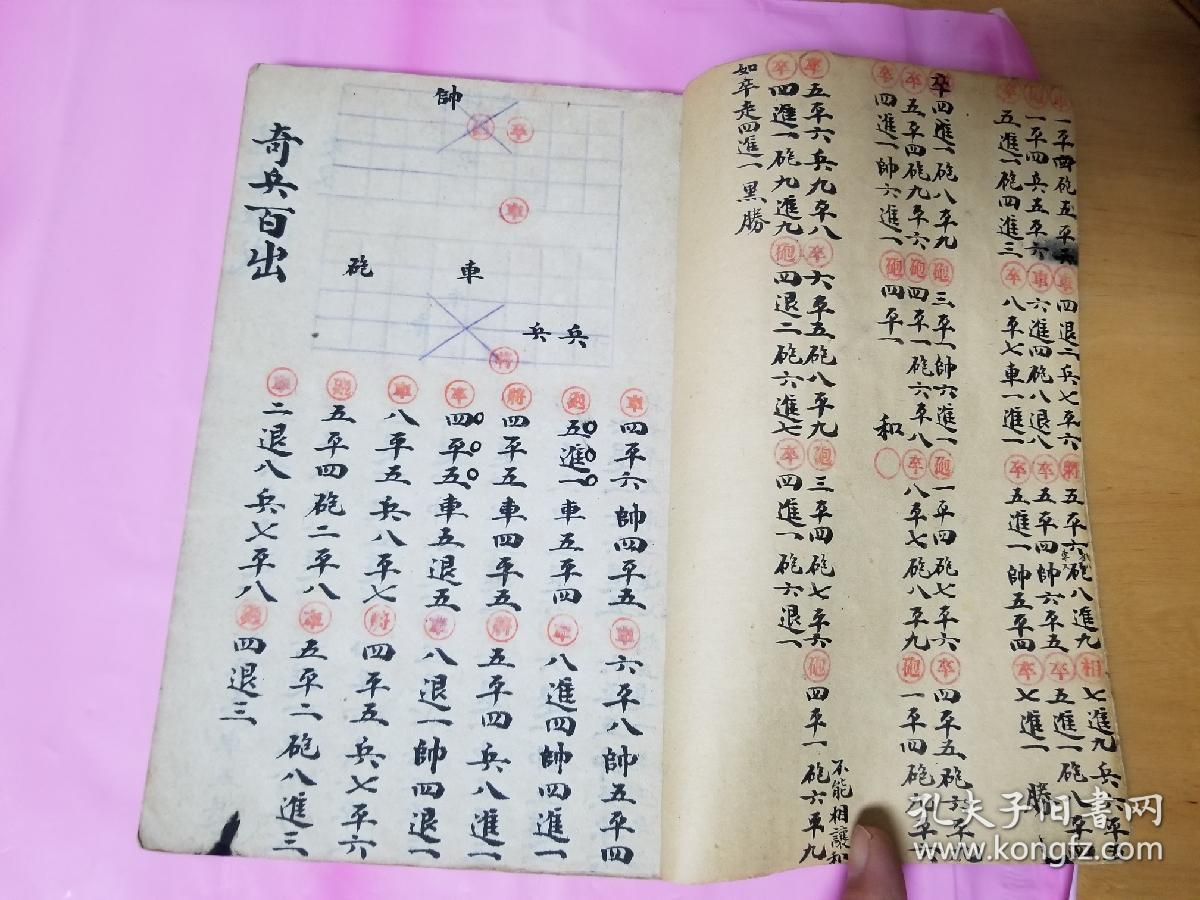 一平四砲五平六 車四退二兵七平六 將五平六砲八進九 相七進九兵六平五
砲一平四兵五平六 車六進四砲八退八 卒五平四帥六平五 卒五進一砲八平四
卒五進一砲四進三 卒八平七車一進一 卒五進一帥五平四 卒七進一 勝
卒四進一砲八平九 砲三平一帥六進一 砲一平四砲七平六 卒四平五砲六平九
卒五平四砲九平六 砲四平一砲六平八 卒八平七砲八平九 砲一平四砲九平六
卒四進一帥六進一 砲四平一 和
卒五平六兵九平八 卒六平五砲八平九 砲三平四砲七平六 砲四平一砲六平九
不能相讓和
卒四進一砲九進九 砲四退二砲六進七 卒四進一砲六退一
如卒走四進一 黑勝
奇兵百出
帥
砲 卒
車
砲 車
兵 兵
將
車四平六帥四平五 車六平八帥五平四
砲五進一車五平四 車八進四帥四進一
將四平五車四平五 將五平四兵八進一
卒四平五車五退五 車八退一帥四退一
車八平五兵八平七 將四平五兵七平六
砲五平四砲二平八 車五平二砲八進三
車二退八兵七平八 砲四退三
孔夫子旧書网
www.kongfz.com